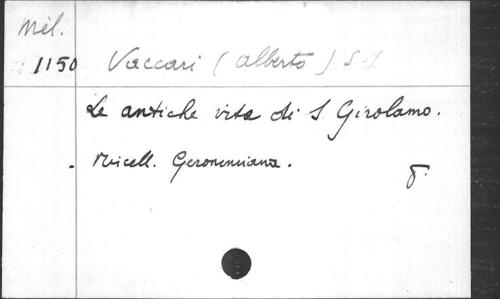 Mél.
1150 Vaccari (Alberto) S-I
Le antiche vita di S Girolamo.
Micell. Geronimiana.
8.